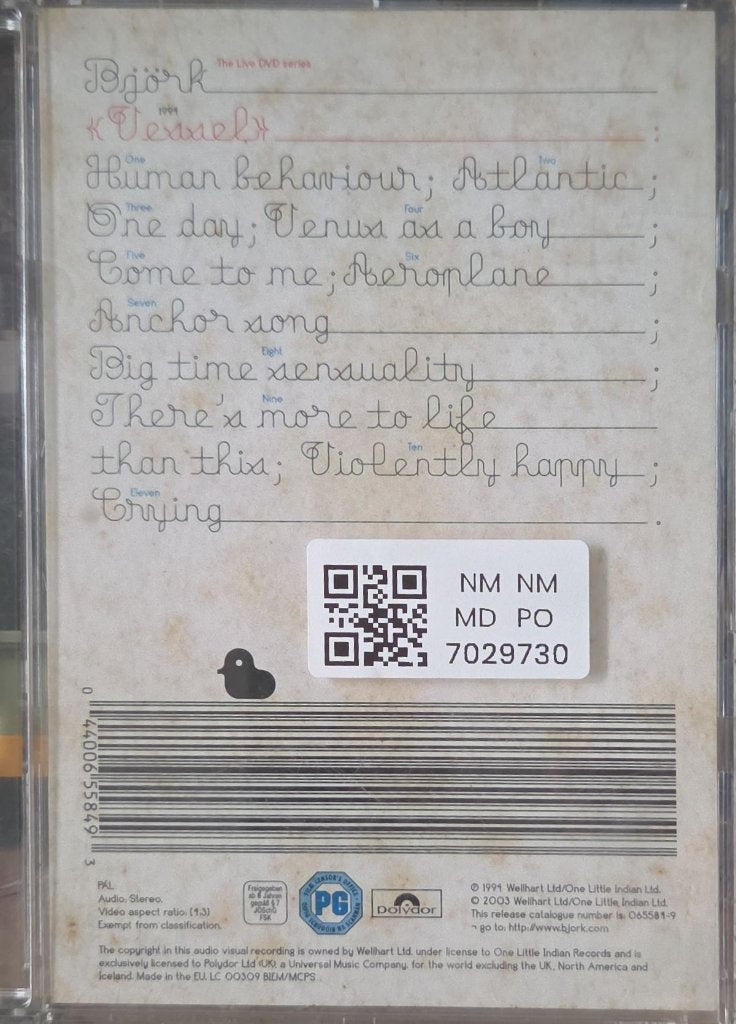 Björk The Live DVD series
1994
«Vessel» ;
One Two
Human behaviour; Atlantic ;
Three Four
One day; Venus as a boy ;
Five Six
Come to me; Aeroplane ;
Seven
Anchor song ;
Eight
Big time sensuality ;
Nine
There's more to life
Ten
than this; Violently happy ;
Eleven
Crying .
NM NM
MD PO
7029730
0 44006 55849 3
PAL
Audio: Stereo.
Video aspect ratio: (4:3)
Exempt from classification.
Freigegeben
ab 6 Jahren
gemäß § 7
JÖSchG
FSK
PG
polydor
℗ 1994 Wellhart Ltd/One Little Indian Ltd.
© 2003 Wellhart Ltd/One Little Indian Ltd.
This release catalogue number is: 065584-9
¬ go to: http://www.bjork.com
The copyright in this audio visual recording is owned by Wellhart Ltd. under license to One Little Indian Records and is
exclusively licensed to Polydor Ltd (UK), a Universal Music Company, for the world excluding the UK, North America and
Iceland. Made in the EU. LC 00309 BIEM/MCPS.